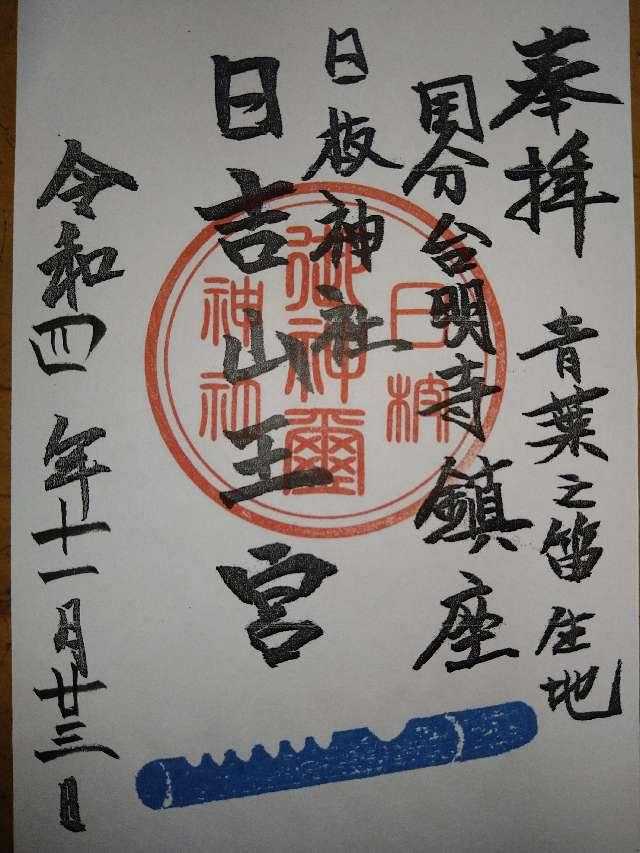 奉拝
青葉之笛生地
国分台明寺鎮座
日枝神社
日吉山王宮
令和四年十一月廿三日
日枝
御神璽
神社